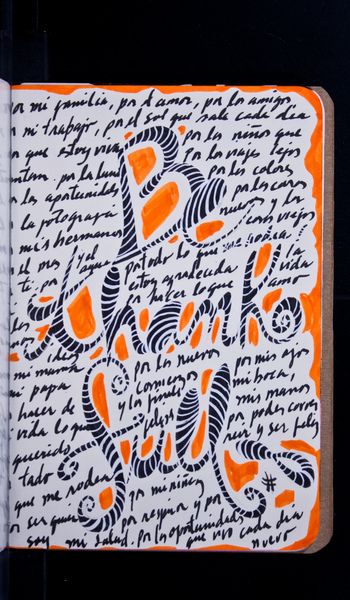 por mi familia, por el amor, por los amigos,
mi trabajo, por el sol que sale cada dia
Be
por los niños que
que estoy viva
por los viajes lejos
por la luna
por los colores
los oportunidades
por los caros
la fotografia
nuevos y los
mis hermanos
caros viejos
el mar y el
por todo lo que
la
ti por agua
estoy agradecida
vida
por hacer lo que amo
thank
ful
por los nuevos
por mis ojos
mi mamá
comienzos
mi boca,
mi papa
y los finales
mis manos
hacer de
felices
por poder correr
vida lo que
reir y ser feliz
querido
tado
#
que me rodea
por mi niñez
ser quien
por respirar y por
soy mi salud. por las oportunidades
que vivo cada dia
nuevo